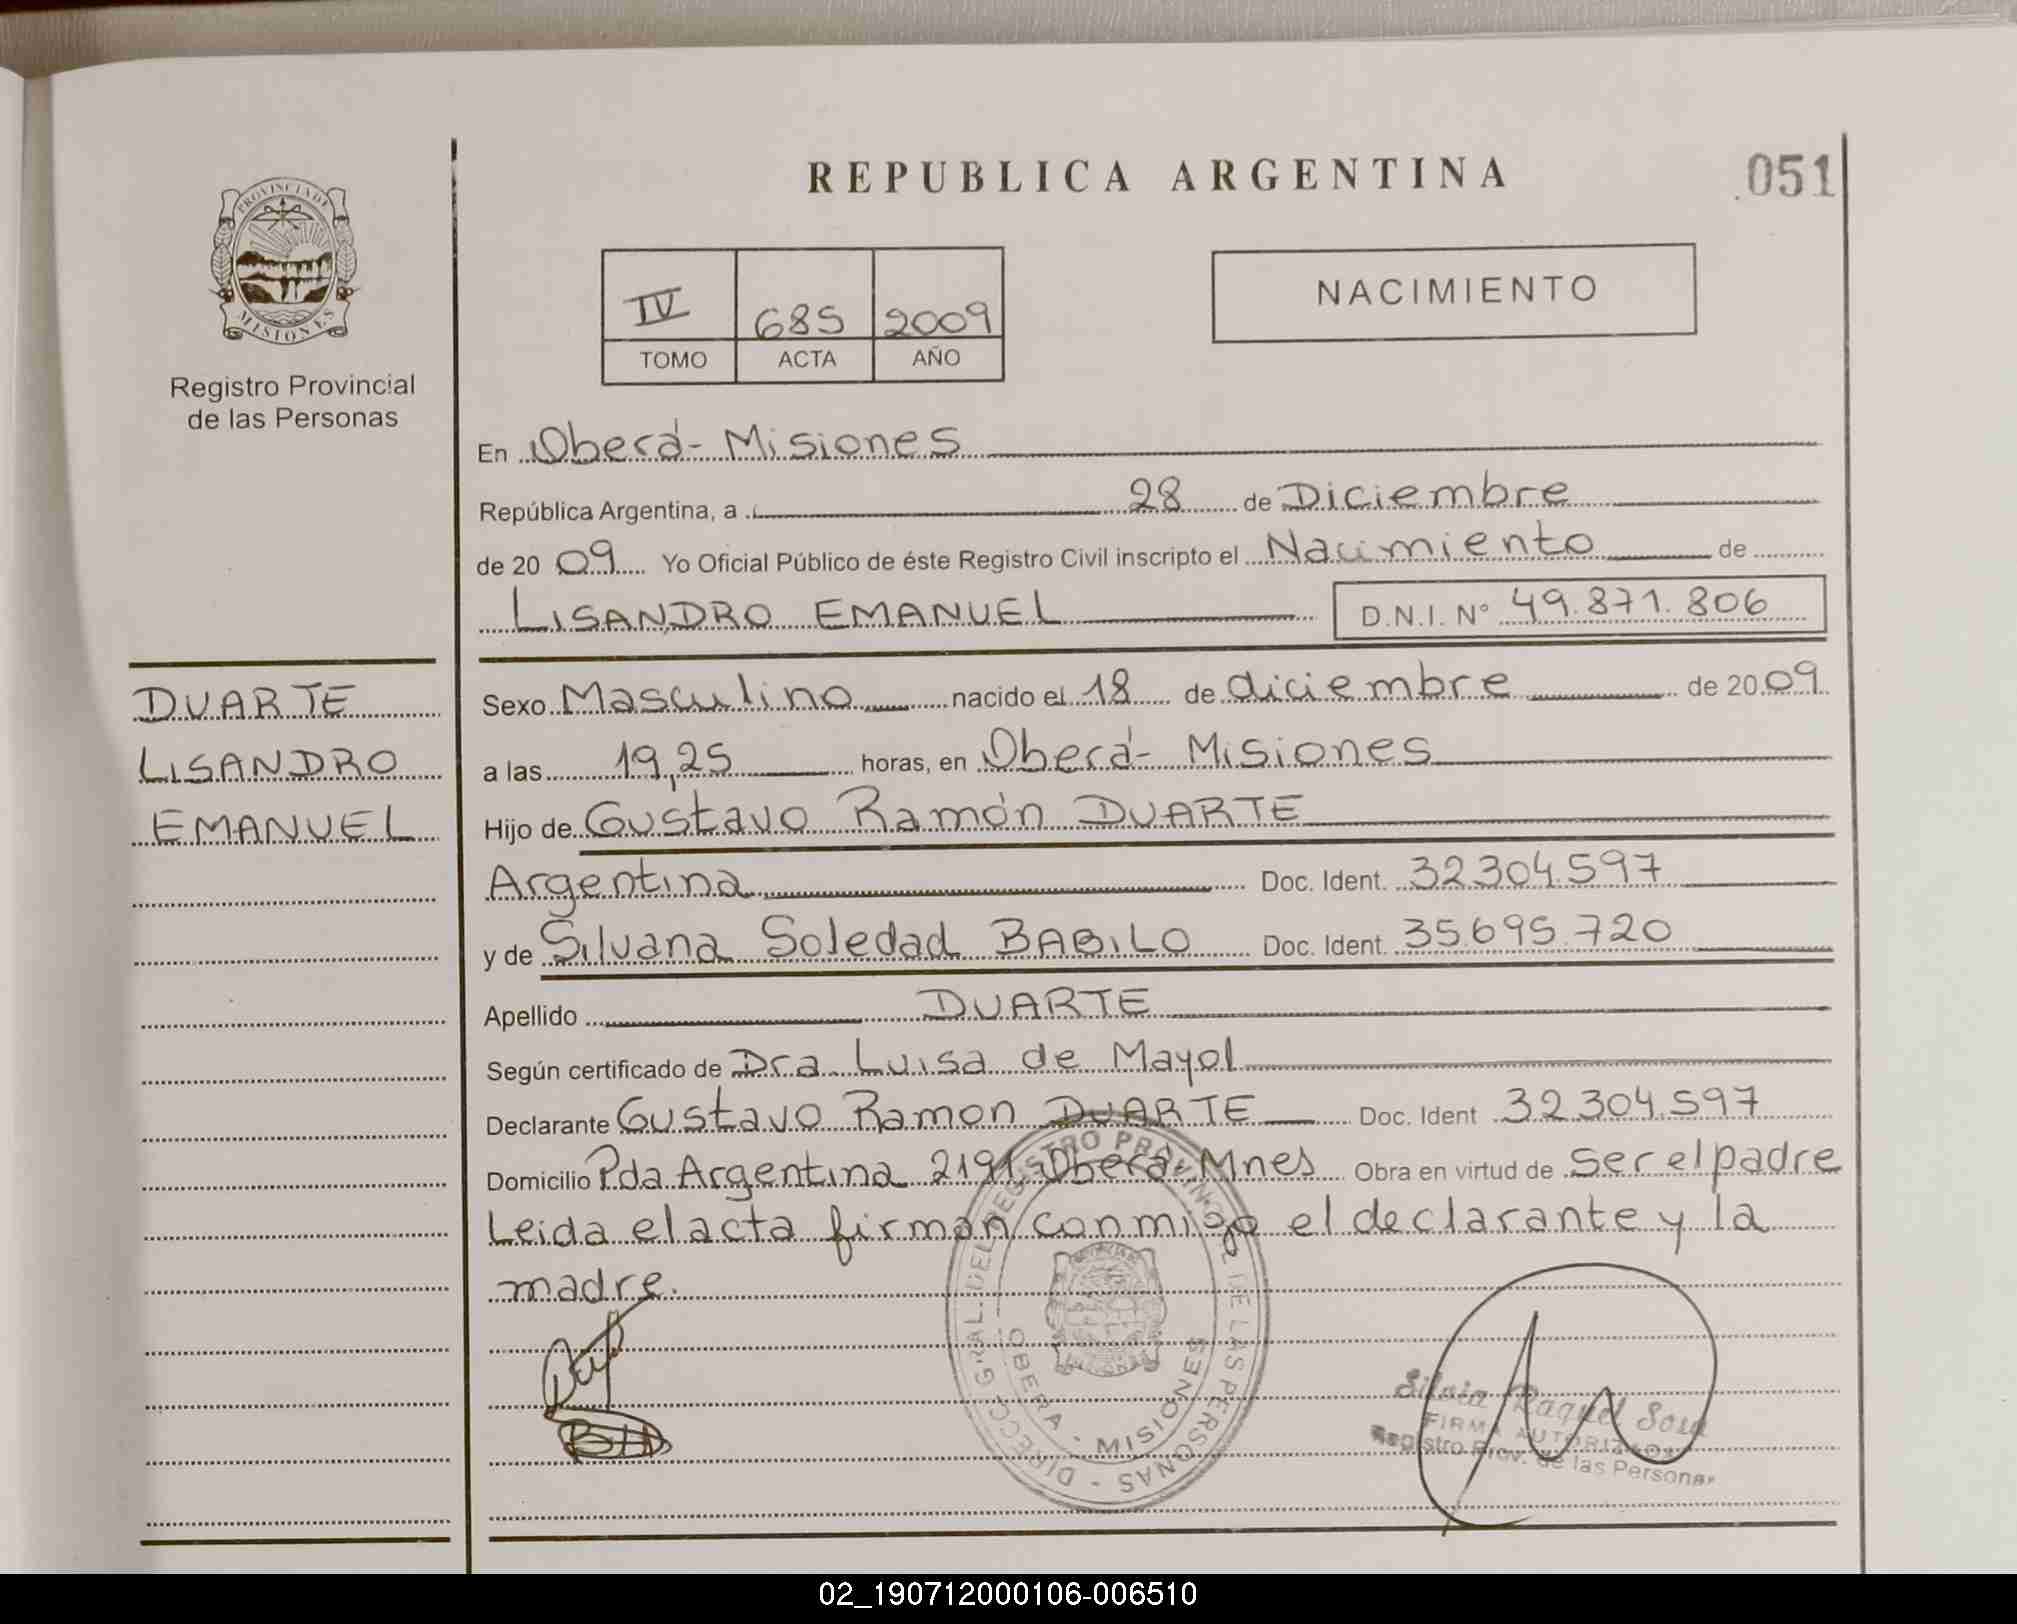 REPUBLICA ARGENTINA
051
PROVINCIA DE
MISIONES
Registro Provincial
de las Personas
IV 685 2009
TOMO ACTA AÑO
NACIMIENTO
En Oberá- Misiones
República Argentina, a 28 de Diciembre
de 20 09 Yo Oficial Público de éste Registro Civil inscripto el Nacimiento de
LISANDRO EMANUEL D.N.I. Nº 49.871.806
DUARTE
LISANDRO
EMANUEL
Sexo Masculino nacido el 18 de diciembre de 20 09
a las 19,25 horas, en Oberá- Misiones
Hijo de Gustavo Ramón DUARTE
Argentina Doc. Ident. 32.304.597
y de Silvana Soledad BABILO Doc. Ident. 35.695.720
Apellido DUARTE
Según certificado de Dra Luisa de Mayol
Declarante Gustavo Ramon DUARTE Doc. Ident 32.304.597
Domicilio Pda Argentina 2191, Oberá- Mnes Obra en virtud de ser el padre
Leida el acta firman conmigo el declarante y la
madre.
DIRECC. GRAL. DEL REGISTRO PROVINCIAL DE LAS PERSONAS -
OBERA - MISIONES
Silvia Raquel Sosa
FIRMA AUTORIZADA
Registro Prov. de las Personas
02_190712000106-006510